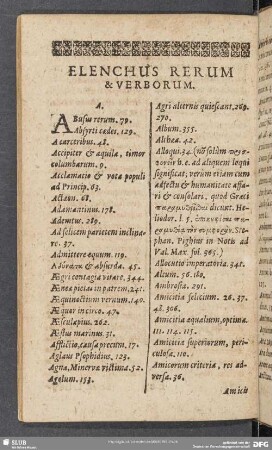 ELENCHUS RERUM
& VERBORUM.
A.
ABusus rerum. 79.
Absyrti cædes. 129.
A carceribus. 48.
Accipiter & aquila, timor
columbarum. 9.
Acclamatio & vota populi
ad Princip. 63.
Actæon. 68.
Adamantinus. 178.
Ademtus. 289.
Ad felicem parietem inclina-
re. 37.
Admittere equum. 119.
& absurda. 45.
Ægri contagia vitare. 344.
Æneæ pietas in patrem, 241.
Æquinoctium vernum. 140.
Æquor in circo. 47.
Æsculapius. 262.
Æstus marinus. 31.
Afflictio, causa precum, 17.
Aglaus Psophidius, 123.
Agna, Minervæ victima. 52.
Agelum. 153.
Agri alternis quiescant. 269.
270.
Album. 355.
Althæa. 42.
Alloqui. 34.
b. e. ad aliquem loqui
significat, verùm etiam cum
adfectu & humanitate affa-
ri & consolari, quod Græci
dicunt. He-
liodor. l. 5.
Ste-
phan. Pighius in Notis ad
Val. Max. fol. 365.)
Allocutio imperatoria. 342.
Alum. 56. 180.
Ambrosia. 291.
Amicitia felicium. 26. 37.
48. 306.
Amicitia æqualium, optima.
111. 114. 115.
Amicitia superiorum, peri-
culosa. 110.
Amicorum criteria, res ad-
versa. 36.
Amicis
SLUB
DFG